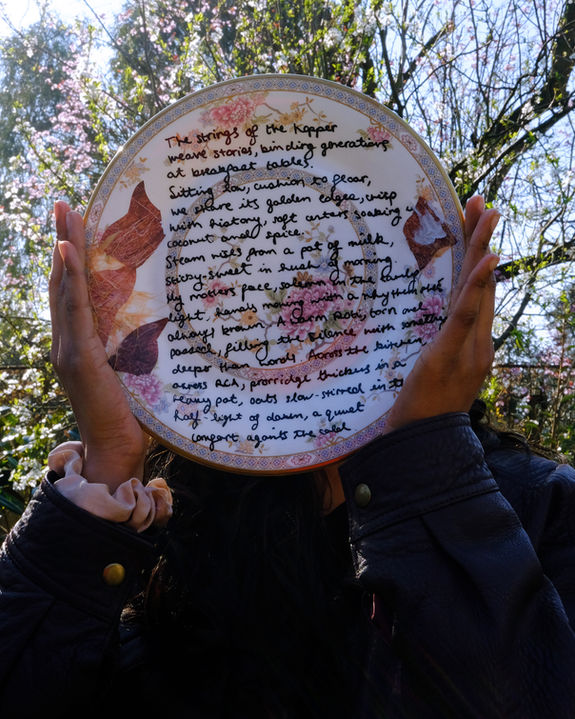 The strings of the Kopper
weave stories, binding generations
at breakfast tables.
Sitting low, cushion to floor,
we share its golden edges, crisp
with history, soft centers soaking in
coconut and spice.
Steam rises from a pot of milk,
sticky-sweet in sunday morning.
My mothers face, solemn in the early
light, hands moving with a rhythm she's
always known. Warm Roti, torn and
passed, filling the silence with something
deeper than words. Across the kitchen
across RCA, porridge thickens in a
heavy pot, oats slow-stirred in the
half-light of dawn, a quiet
comfort against the cold